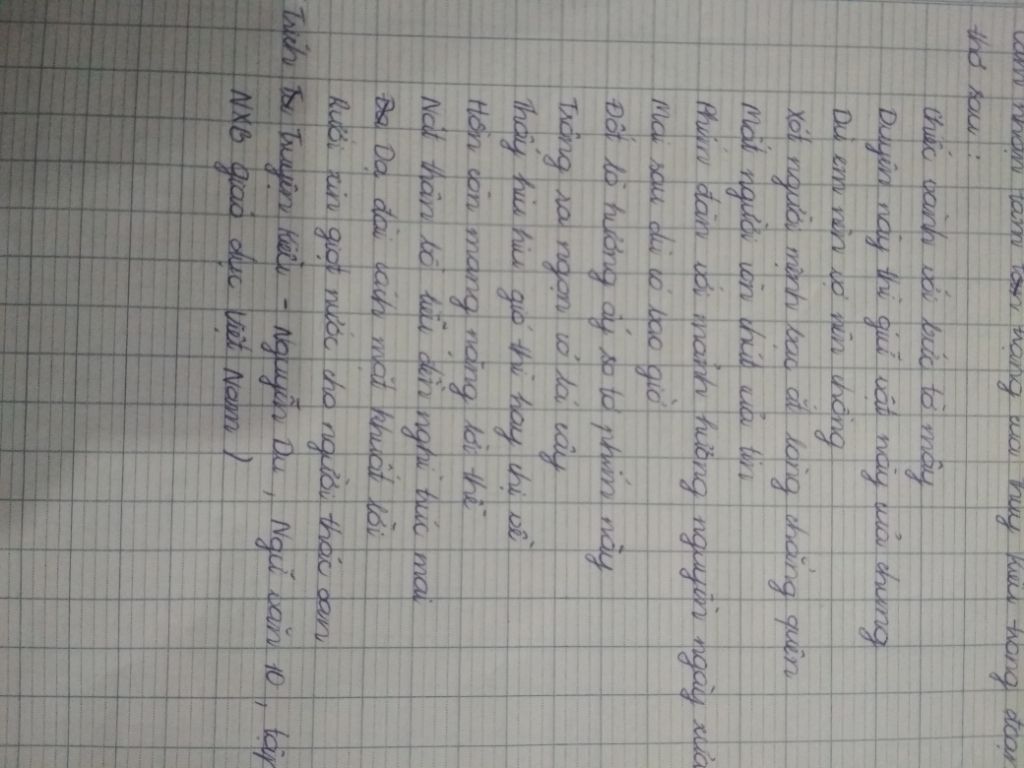 Cảm nhận tâm trạng của Thúy Kiều trong đoạn
thơ sau:
Chiếc vành với bức tờ mây
Duyên này thì giữ vật này của chung
Dù em nên vợ nên chồng
Xót người mệnh bạc ắt lòng chẳng quên
Mất người còn chút của tin
Phím đàn với mảnh hương nguyền ngày xưa
Mai sau dù có bao giờ
Đốt lò hương ấy so tơ phím này
Trông ra ngọn cỏ lá cây
Thấy hiu hiu gió thì hay chị về
Hồn còn mang nặng lời thề
Nát thân bồ liễu đền nghì trúc mai
Dạ đài cách mặt khuất lời
Rưới xin giọt nước cho người thác oan
Trích Truyện Kiều - Nguyễn Du, Ngữ văn 10, tập
NXB giáo dục Việt Nam)